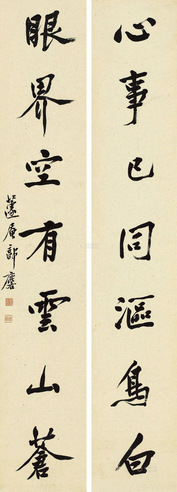 心事已同漚鳥白
眼界空有雲山蒼
蘧庵郭麐